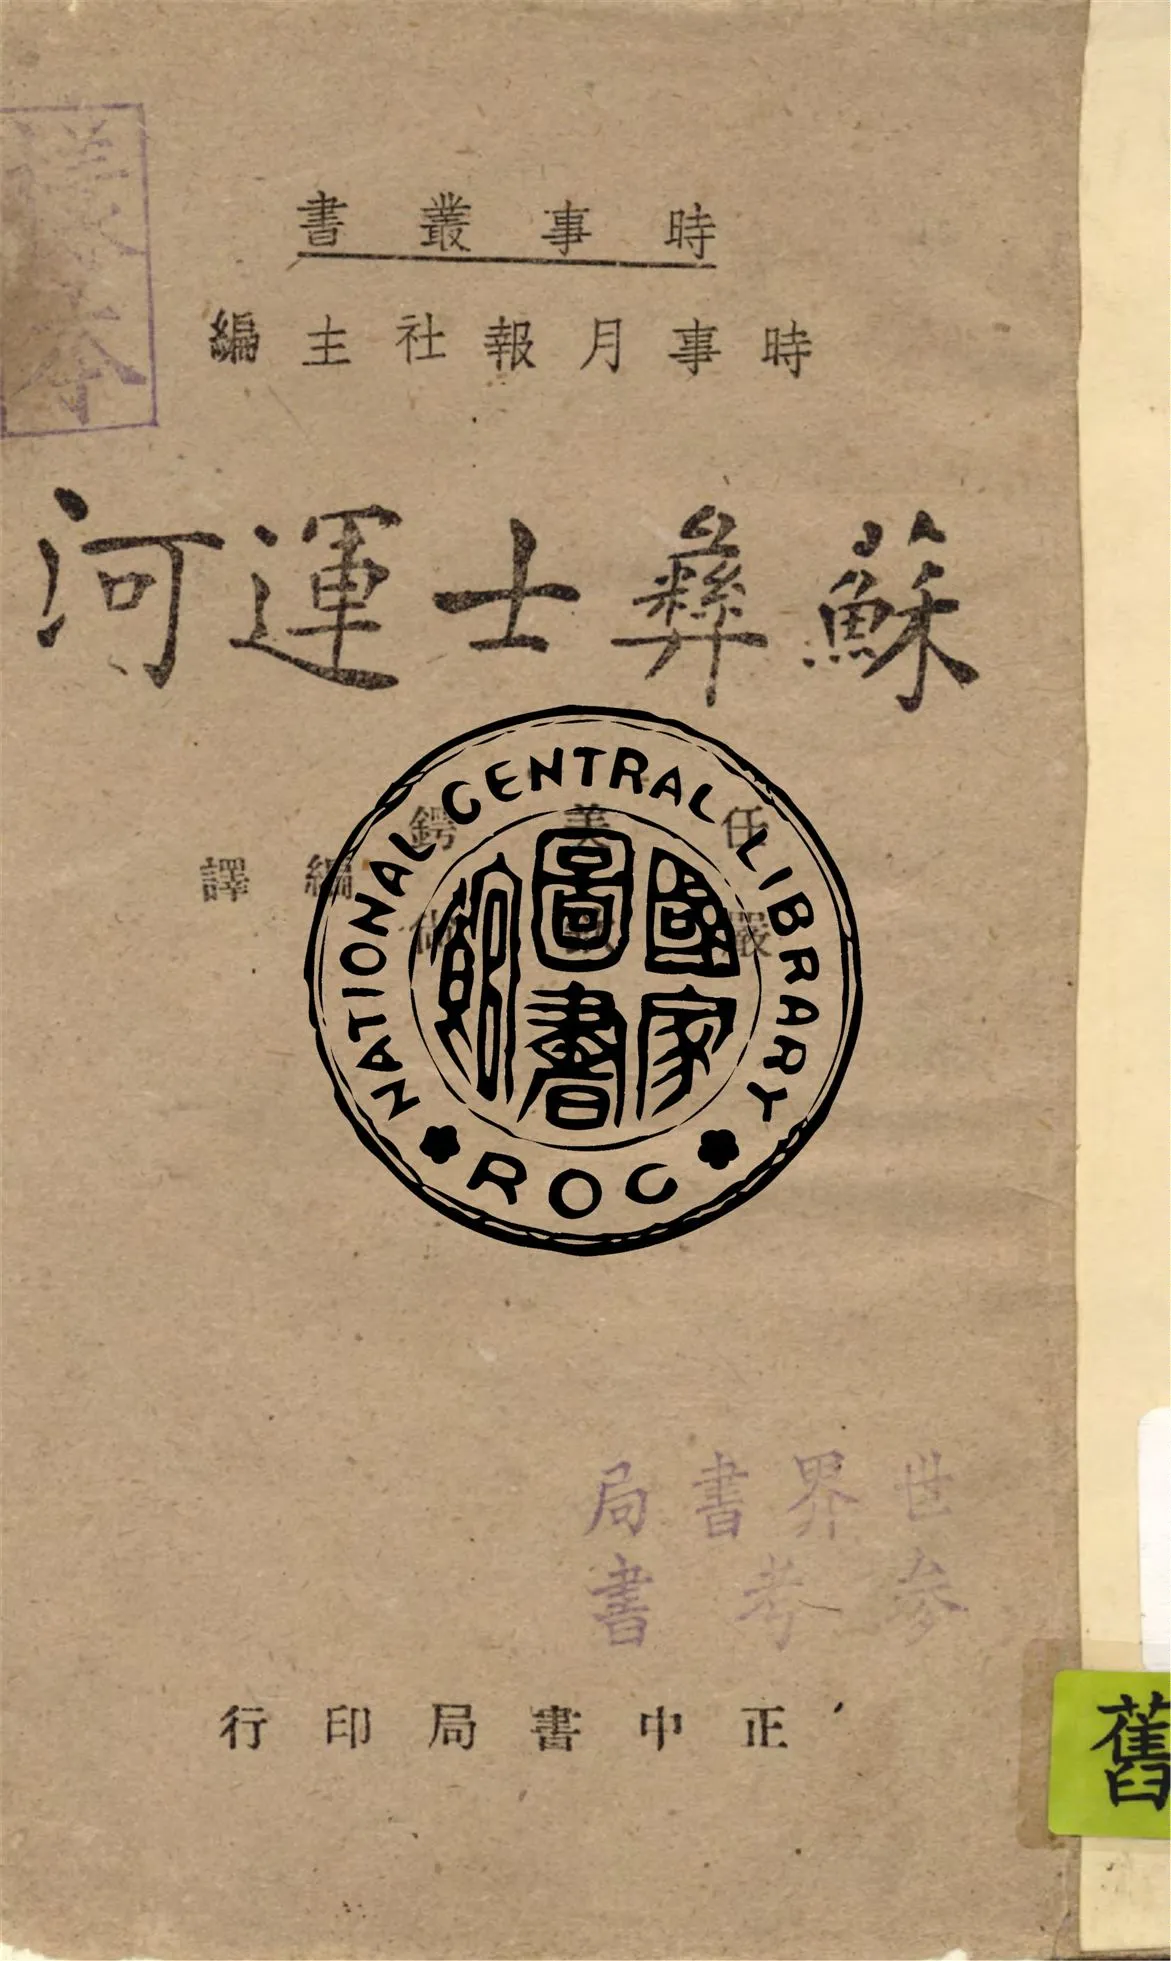 時事叢書
時事月報社主編
蘇彝士運河
任美鍔
嚴欽尚
編譯
NATIONAL CENTRAL LIBRARY
國家圖書館
ROC
世界書局
參考書
正中書局印行
舊